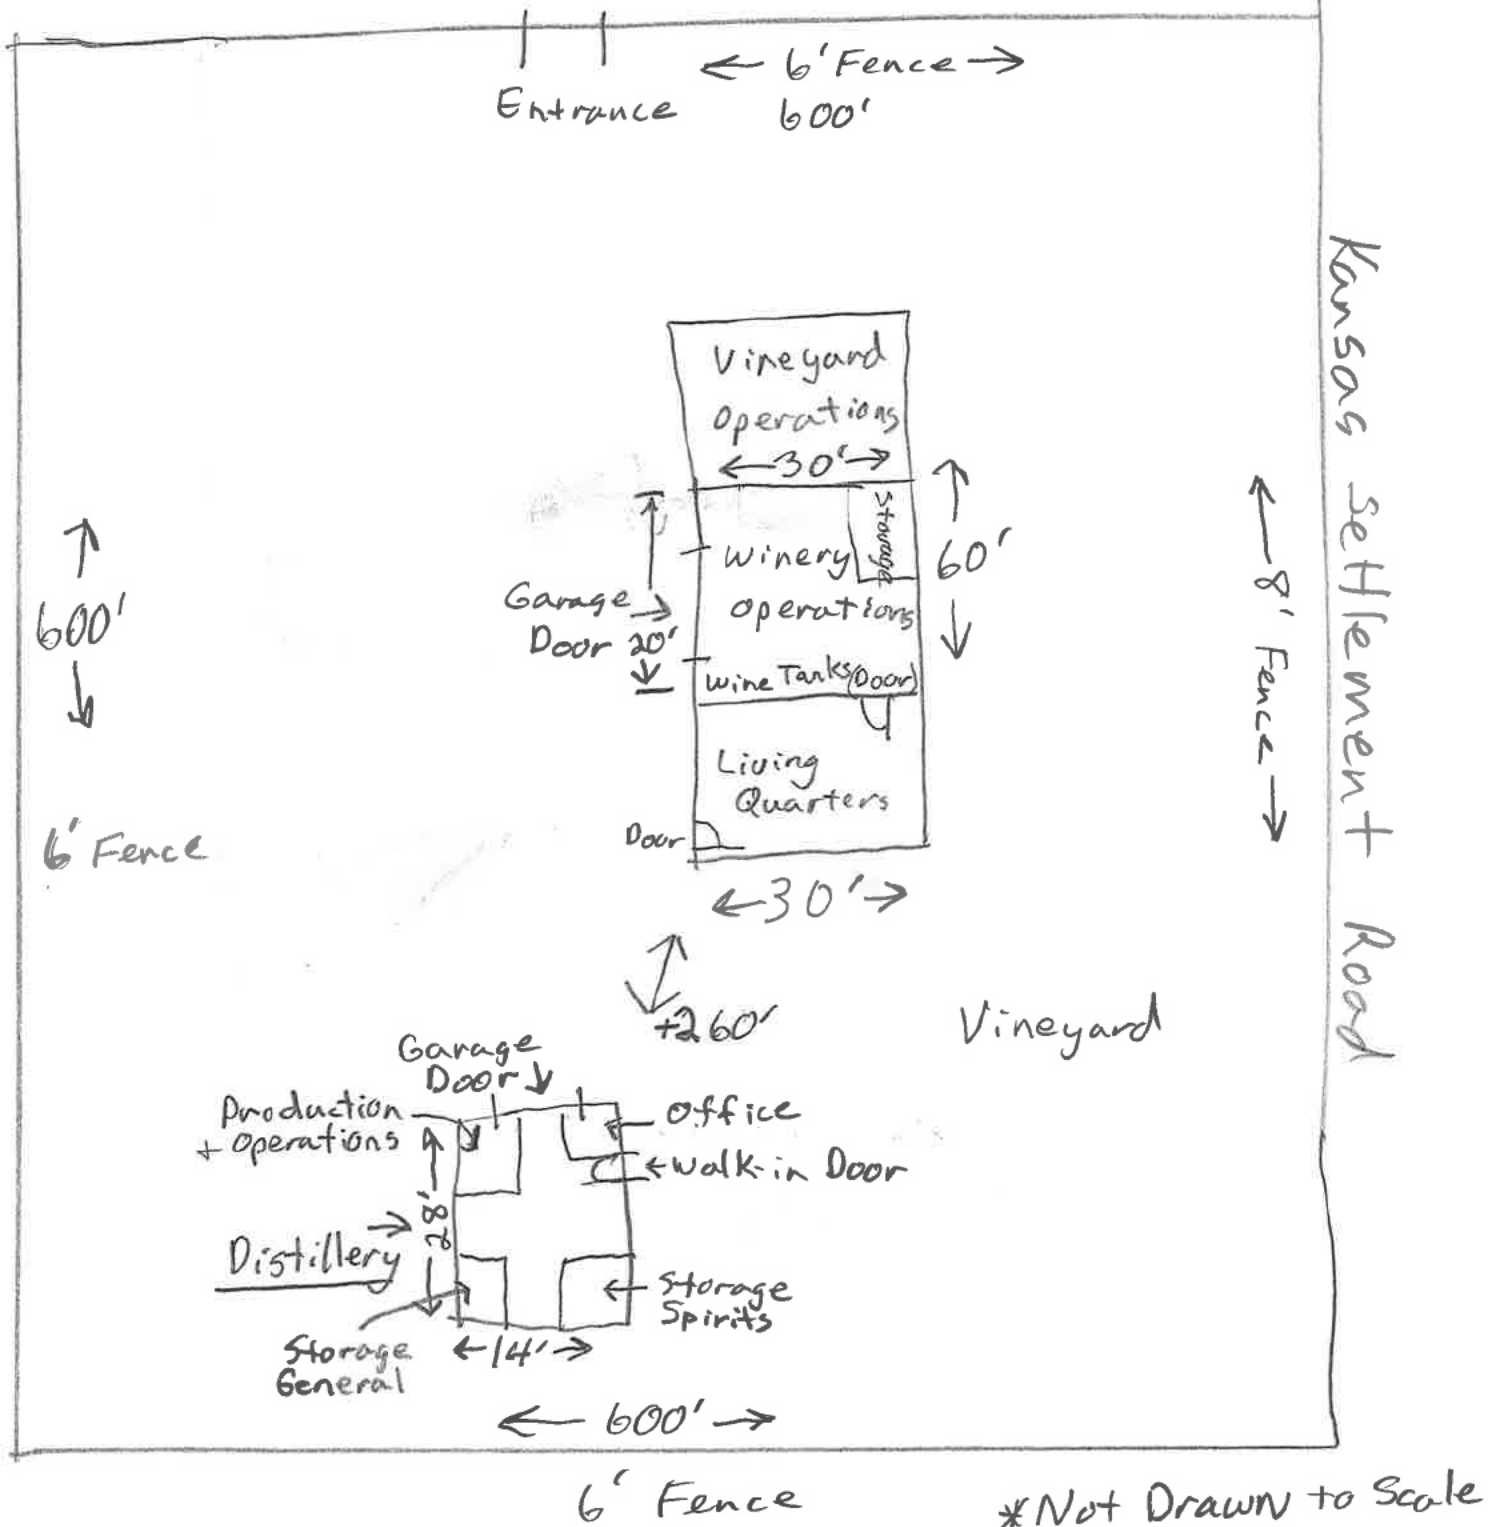 6' Fence
600'
Entrance
Kansas Settlement Road
Vineyard
Operations
30'
Storage
60'
Winery
Operations
Garage
Door 20'
Wine Tanks (Door)
600'
8' Fence
Living
Quarters
Door
6' Fence
30'
+260'
Vineyard
Garage
Door
Production
+ Operations
Office
Walk-in Door
28'
Distillery
Storage
Spirits
14'
Storage
General
600'
6' Fence
*Not Drawn to Scale